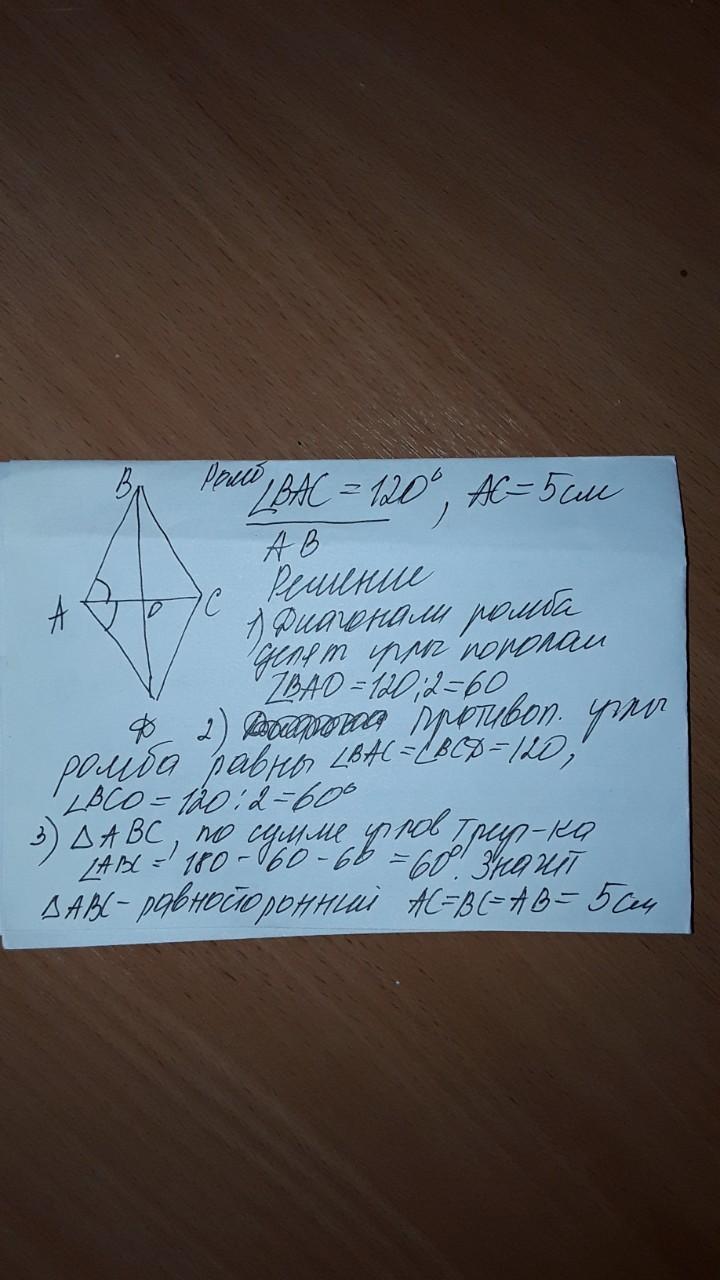 B Ромб ∠BAC = 120°, AC = 5 см
AB
Решение
A O C
1) Диагонали ромба
делят углы пополам
∠BAO = 120:2 = 60
D 2) Противоп. углы
ромба равны ∠BAC = ∠BCD = 120,
∠BCO = 120:2 = 60°
3) △ABC, по сумме углов треуг-ка
∠ABC = 180 - 60 - 60 = 60°. Значит
△ABC - равносторонний AC = BC = AB = 5 см